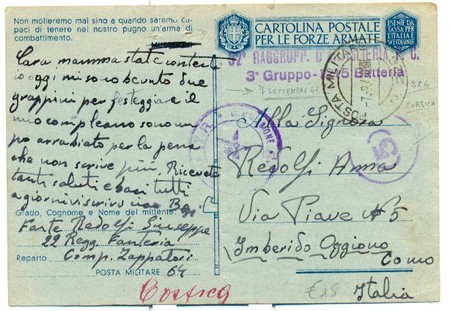 Non molleremo mai sino a quando saremo ca-
paci di tenere nel nostro pugno un'arma di
combattimento.
Cara mamma state contenti
io oggi mi sono bevuto due
grappini per festeggiare il
mio compleano sono un
po arrabiato per la pena
che non scrive più. Ricevete
tanti saluti e baci tutti
a giorni vi scrivo
Grado, Cognome e Nome del mittente:
Fante Redolfi Giuseppe
22 Regg. Fanteria
Reparto Comp. Zappatori
POSTA MILITARE 64
Corsica
CARTOLINA POSTALE
PER LE FORZE ARMATE
ESENTE DA
TASSA PER
L'ITALIA E
SUE COLONIE
RAGGRUPP.
3° Gruppo - Batteria
POSTA MILITARE
226
CORSICA
Alla Signora
Redolfi Anna
Via Piave N° 5
Imberido Oggiono
Como
Italia
€15